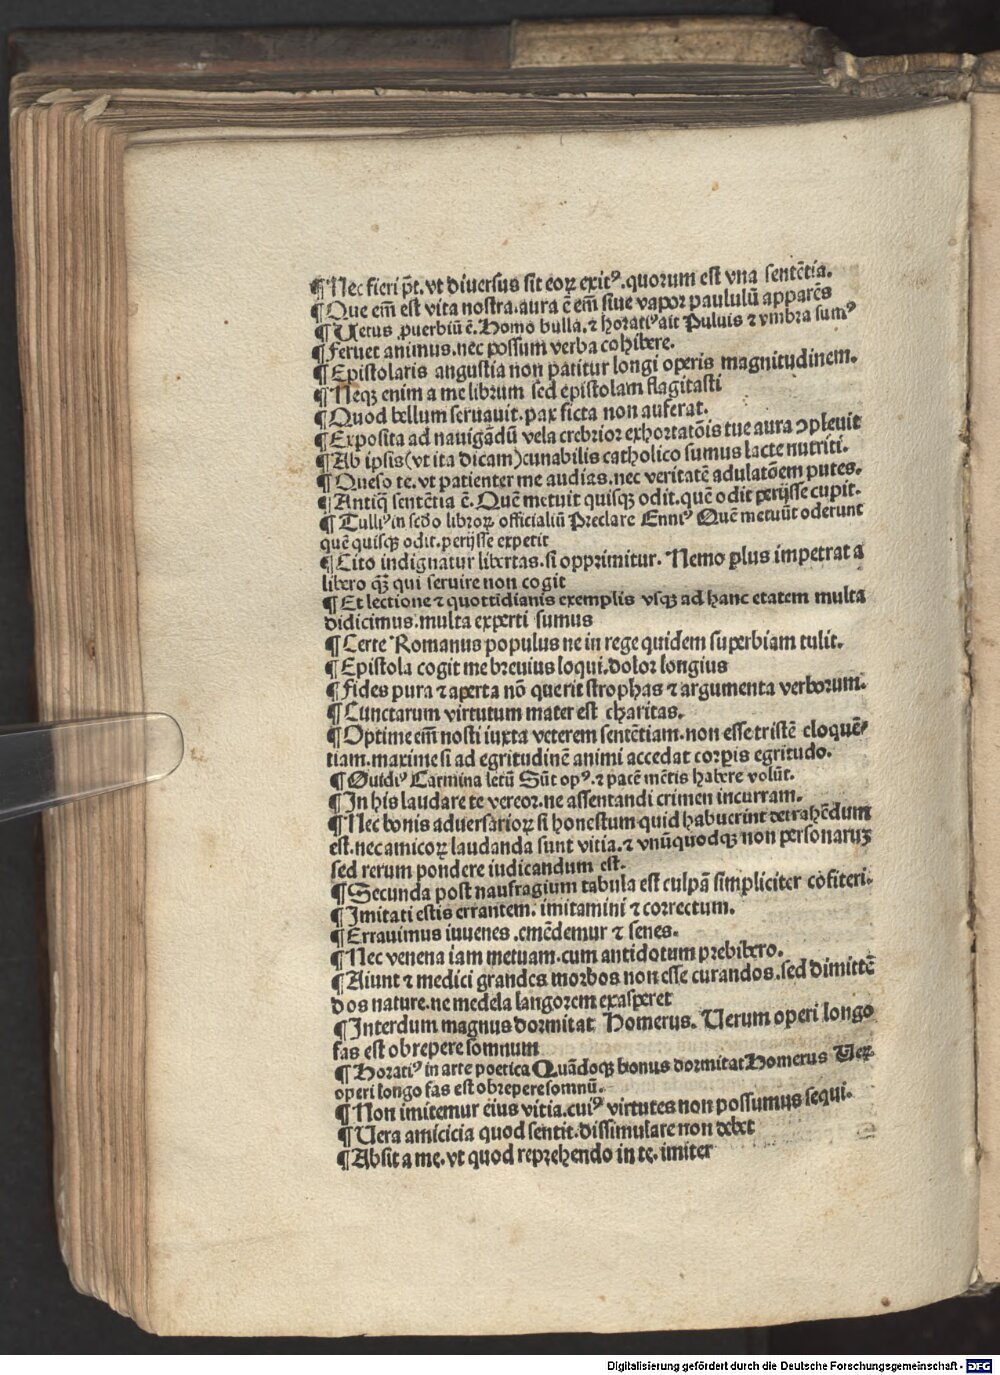 ¶Nec fieri põt. vt diuersus sit eoꝝ exitꝰ. quorum est vna sentẽtia.
¶Que em̃ est vita nostra. aura ẽ em̃ siue vapor paululũ apparẽs
¶Uetus ꝓuerbiũ ẽ. Homo bulla. ⁊ horatiꝰ ait Puluis ⁊ vmbra sumꝰ
¶Feruet animus. nec possum verba cohibere.
¶Epistolaris angustia non patitur longi operis magnitudinem.
¶Neqꝫ enim a me librum sed epistolam flagitasti
¶Quod bellum seruauit. pax ficta non auferat.
¶Exposita ad nauigãdũ vela crebrior exhortatõis tue aura ꝯpleuit
¶Ab ipsis (vt ita dicam) cunabilis catholico sumus lacte nutriti.
¶Queso te. vt patienter me audias. nec veritatẽ adulatõem putes.
¶Antiq̃ sentẽtia ẽ. Quẽ metuit quisqꝫ odit. quẽ odit perijsse cupit.
¶Tulliꝰ in sedo libroꝝ officialiũ Preclare Enniꝰ Quẽ metuũt oderunt
quẽ quisqꝫ odit. perijsse expetit
¶Cito indignatur libertas. si opprimitur. Nemo plus impetrat a
libero qꝫ̃ qui seruire non cogit
¶Et lectione ⁊ quottidianis exemplis vsqꝫ ad hanc etatem multa
didicimus. multa experti sumus
¶Certe Romanus populus ne in rege quidem superbiam tulit.
¶Epistola cogit me breuius loqui. dolor longius
¶Fides pura ⁊ aperta nõ querit strophas ⁊ argumenta verborum.
¶Cunctarum virtutum mater est charitas.
¶Optime em̃ nosti iuxta veterem sentẽtiam. non esse tristẽ eloquẽ⸗
tiam. maxime si ad egritudinẽ animi accedat corpis egritudo.
¶Ouidiꝰ Carmina letũ Sũt opꝰ. ⁊ pacẽ mẽtis habere volũt.
¶In his laudare te vereor. ne assentandi crimen incurram.
¶Nec bonis aduersarioꝝ si honestum quid habuerint detrahẽdum
est. nec amicoꝝ laudanda sunt vitia. ⁊ vnũquodqꝫ non personaruꝫ
sed rerum pondere iudicandum est.
¶Secunda post naufragium tabula est culpã simpliciter cõfiteri.
¶Imitati estis errantem. imitamini ⁊ correctum.
¶Errauimus iuuenes. emẽdemur ⁊ senes.
¶Nec venena iam metuam. cum antidotum prebibero.
¶Aiunt ⁊ medici grandes morbos non esse curandos. sed dimittẽ
dos nature. ne medela langorem exasperet
¶Interdum magnus dormitat Homerus. Uerum operi longo
fas est obrepere somnum
¶Horatiꝰ in arte poetica Quãdoqꝫ bonus dormitat Homerus Uer.
operi longo fas est obrepere somnũ.
¶Non imitemur eius vitia. cuiꝰ virtutes non possumus sequi.
¶Uera amicicia quod sentit. dissimulare non debet
¶Absit a me. vt quod reprehendo in te. imiter
Digitalisierung gefördert durch die Deutsche Forschungsgemeinschaft - DFG